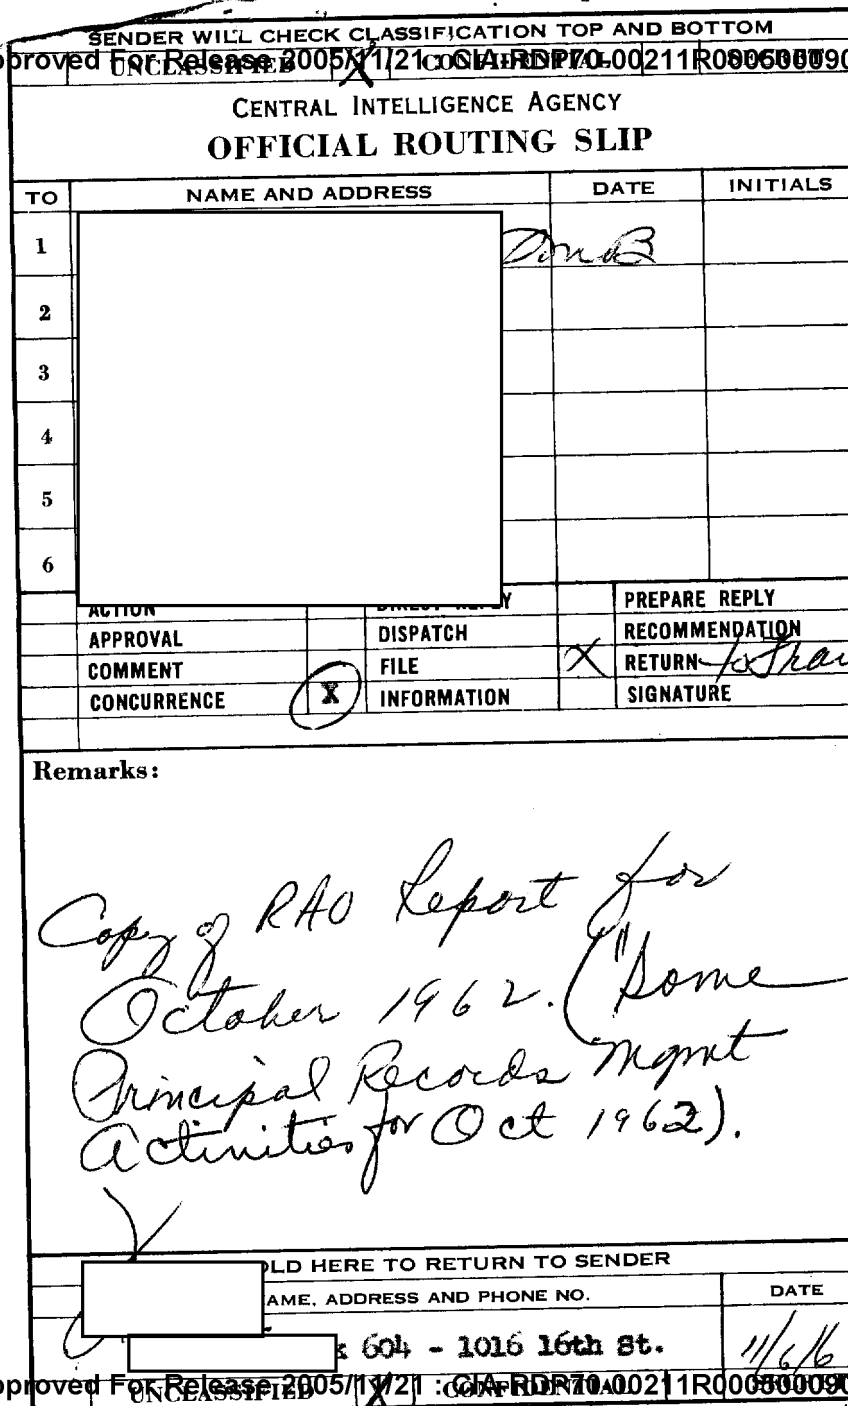 SENDER WILL CHECK CLASSIFICATION TOP AND BOTTOM
pproved For Release 2005/11/21 : CIA-RDP70-00211R00050009
UNCLASSIFIED X CONFIDENTIAL SECRET
CENTRAL INTELLIGENCE AGENCY
OFFICIAL ROUTING SLIP
TO NAME AND ADDRESS DATE INITIALS
1 Don B
2
3
4
5
6
ACTION DIRECT REPLY PREPARE REPLY
APPROVAL DISPATCH RECOMMENDATION
COMMENT FILE X RETURN to
CONCURRENCE X INFORMATION SIGNATURE
Remarks:
Copy of RAO Report for
October 1962. ("Some
Principal Records Mgmt
Activities for Oct 1962).
OLD HERE TO RETURN TO SENDER
AME, ADDRESS AND PHONE NO. DATE
604 - 1016 16th St. 11/6/6
pproved For Release 2005/11/21 : CIA-RDP70-00211R00050009
UNCLASSIFIED X CONFIDENTIAL SECRET